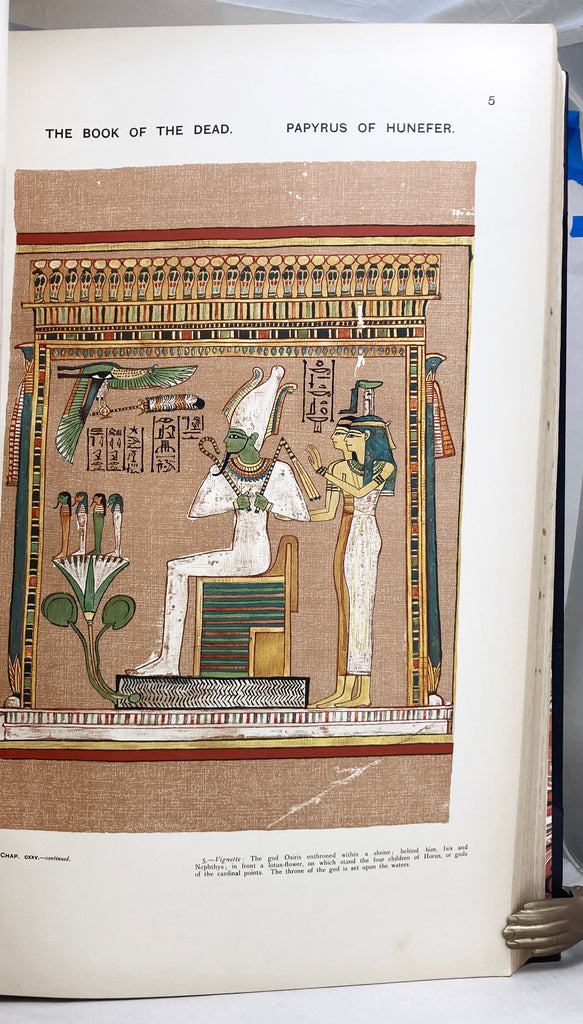 5
THE BOOK OF THE DEAD. PAPYRUS OF HUNEFER.
CHAP. CXXV.—continued.
5.—Vignette: The god Osiris enthroned within a shrine; behind him, Isis and
Nephthys; in front a lotus-flower, on which stand the four children of Horus, or gods
of the cardinal points. The throne of the god is set upon the waters.